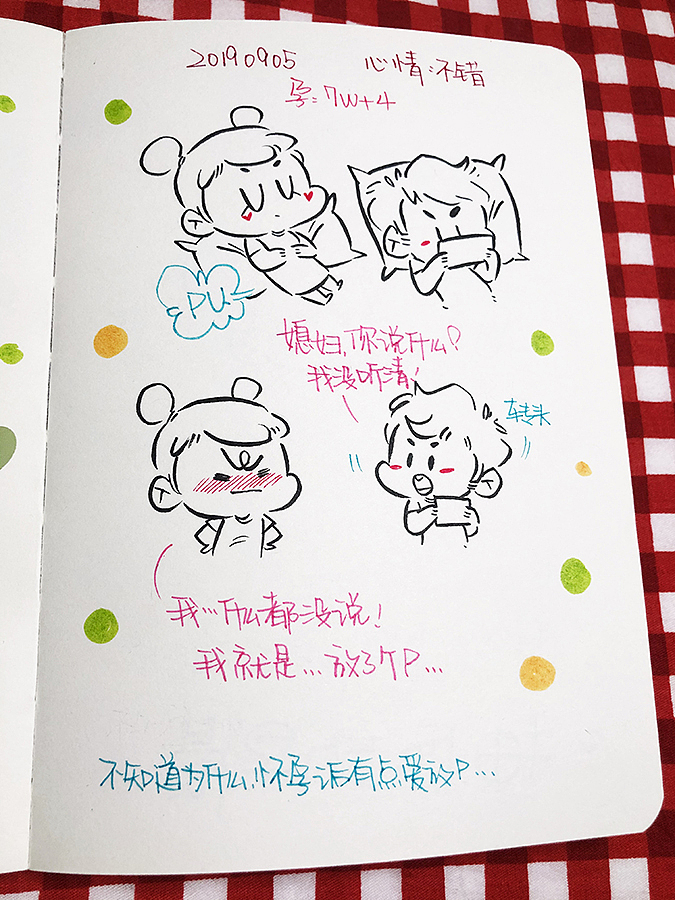 20190905 心情:不错
孕:7W+4
PU
媳妇,你说什么?
我没听清!
转头
我…什么都没说!
我就是…放了个P…
不知道为什么,怀孕后有点爱放P…